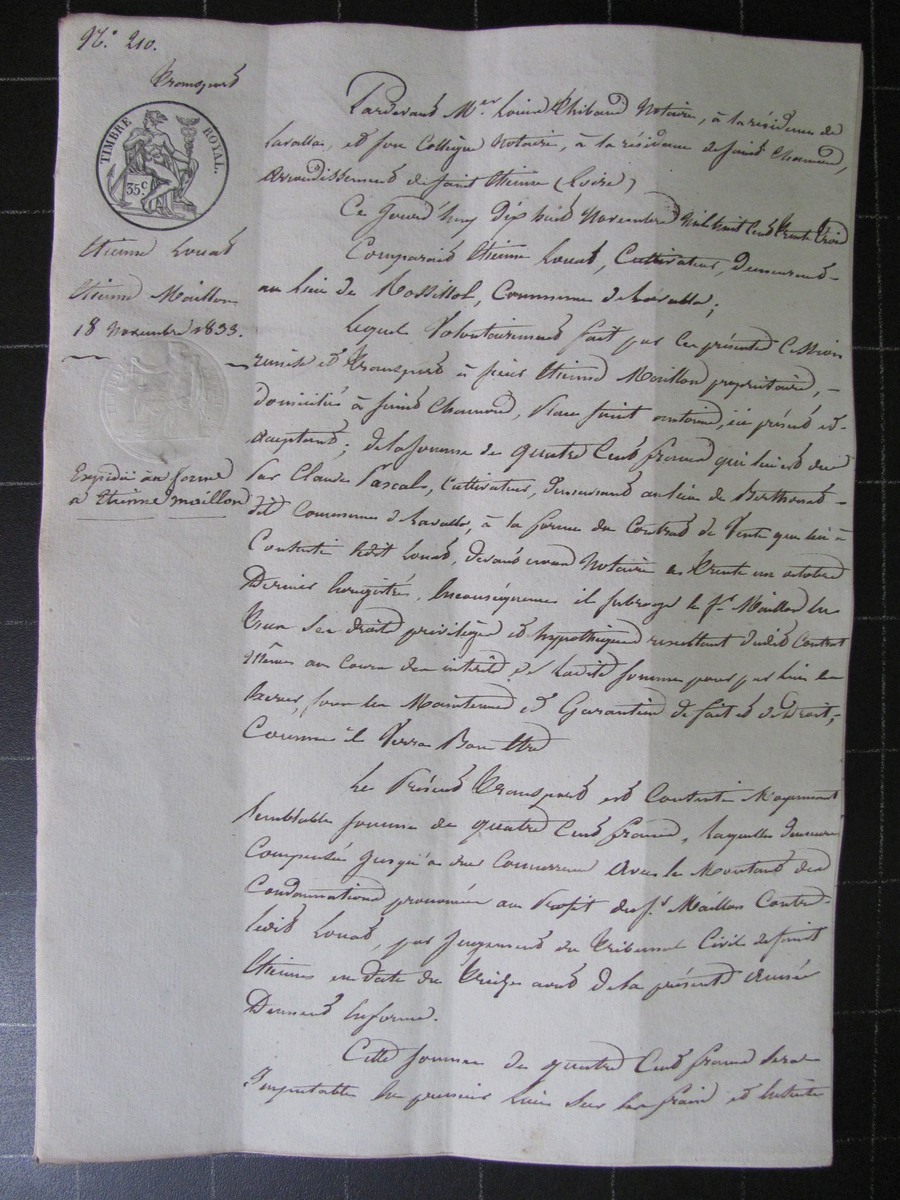 N.° 210.
Transport
TIMBRE ROYAL.
35 c.
Etienne Louat
Etienne Maillon
18 novembre 1833.
Expédié en forme
a Etienne Maillon
Pardevant M.e Louis Thibaud Notaire, à la résidence de
Lavalla, et son Collègue Notaire, à la résidence de saint Chamond,
Arrondissement de saint Etienne (Loire)
Ce jourd'huy dix huit Novembre Mil huit Cent Trente Trois
Comparait Etienne Louat, Cultivateur, Demeurant
au lieu de Rossillol, Commune de Lavalla;
Lequel Volontairement fait par ces présentes Cession
remise et Transport à sieur Etienne Maillon propriétaire, -
Domicilié à saint Chamond, place saint antoine, ici présent et
acceptant; de la somme de quatre Cent francs qui lui est due
Par Claude Pascal, cultivateur, demeurant au lieu de
dit Commune de Lavalla, à la forme du Contrat de Vente que lui a
Consenti ledit Louat, devant nous Notaire le Trente un octobre
Dernier Enregistré, Enconséquence il subroge le s.r Maillon en
Tous ses droits privilège et hypothèques resultant dudit Contrat
Même au cours des intérêts de ladite somme pour par lui les
sous les Maintenue et Garantie de fait et de Droit,
Comme il Verra Bon Etre
Le Présent Transport est Consenti Moyennant
Semblable somme de quatre Cent francs, laquelle demeure
Compensée jusqu'à due Concurrence avec le Montant des
Condamnations prononcées au Profit du s.r Maillon Contre
ledit Louat, par jugement du Tribunal Civil de saint
Etienne en date du Treize août de la présente année
Dument Enforme.
Cette somme de quatre Cent francs sera
Imputable en premier lieu sur les frais et Ensuite